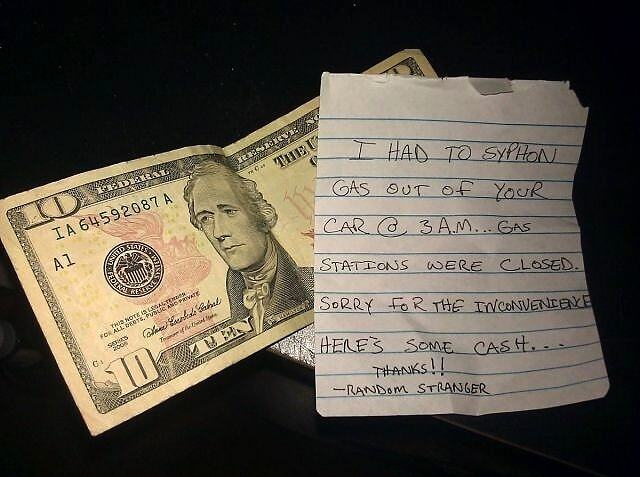 10
FEDERAL RESERVE NO
THE U
IA 64592087 A
A1
UNITED STATES
FEDERAL RESERVE
THIS NOTE IS LEGAL TENDER
FOR ALL DEBTS, PUBLIC AND PRIVATE
Treasurer of the United States
SERIES
10
TEN
I HAD TO SYPHON
GAS OUT OF YOUR
CAR @ 3 A.M... GAS
STATIONS WERE CLOSED.
SORRY FOR THE INCONVENIENCE
HERE'S SOME CASH...
THANKS!!
-RANDOM STRANGER